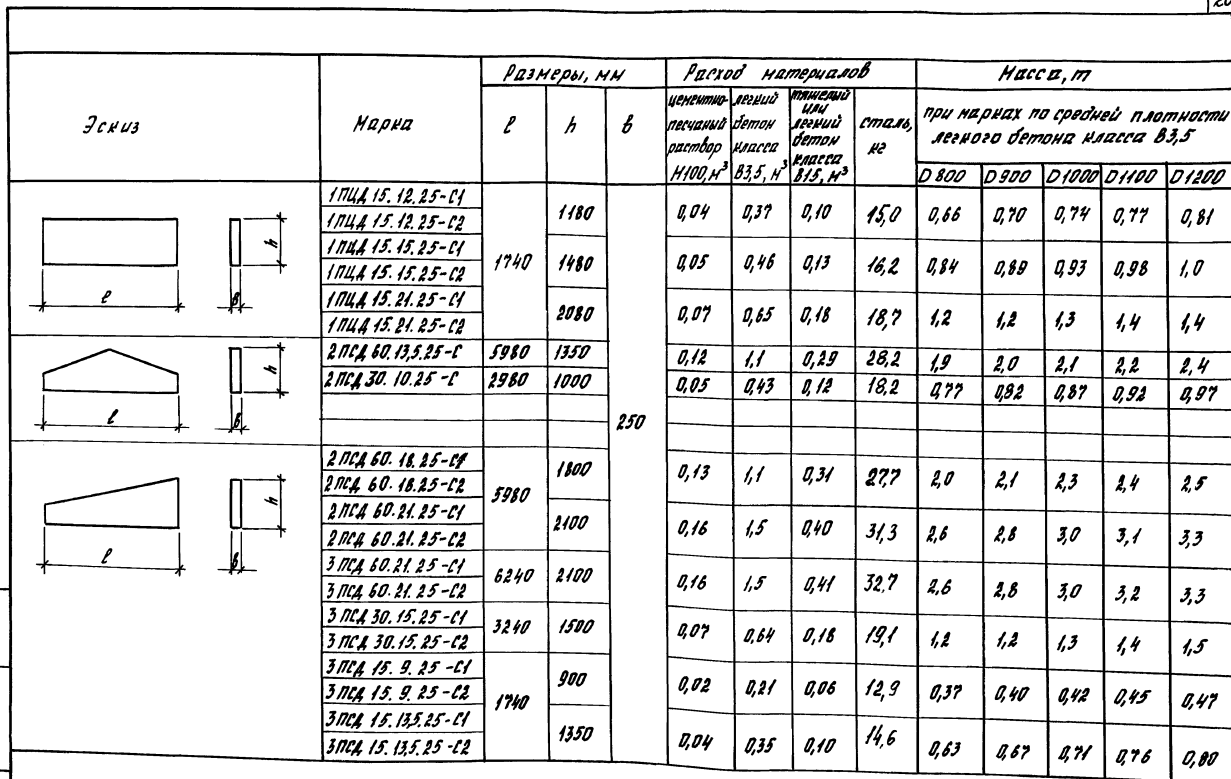 20
Эскиз | Марка | Размеры, мм | Расход материалов | Масса, т
l | h | b | цементно-песчаный раствор М100, м³ | легкий бетон класса В3,5, м³ | тяжелый или легкий бетон класса В15, м³ | сталь, кг | при марках по средней плотности легкого бетона класса В3,5
D800 | D900 | D1000 | D1100 | D1200
1ПЦД 15.12.25-С1 | 1740 | 1180 | 250 | 0,04 | 0,37 | 0,10 | 15,0 | 0,66 | 0,70 | 0,74 | 0,77 | 0,81
1ПЦД 15.12.25-С2
1ПЦД 15.15.25-С1 | 1480 | 0,05 | 0,46 | 0,13 | 16,2 | 0,84 | 0,89 | 0,93 | 0,98 | 1,0
1ПЦД 15.15.25-С2
1ПЦД 15.21.25-С1 | 2080 | 0,07 | 0,65 | 0,18 | 18,7 | 1,2 | 1,2 | 1,3 | 1,4 | 1,4
1ПЦД 15.21.25-С2
l b h
2ПСД 60.13,5.25-С | 5980 | 1350 | 0,12 | 1,1 | 0,29 | 28,2 | 1,9 | 2,0 | 2,1 | 2,2 | 2,4
2ПСД 30.10.25-С | 2980 | 1000 | 0,05 | 0,43 | 0,12 | 18,2 | 0,77 | 0,82 | 0,87 | 0,92 | 0,97
l b h
2ПСД 60.18.25-С1 | 5980 | 1800 | 0,13 | 1,1 | 0,31 | 27,7 | 2,0 | 2,1 | 2,3 | 2,4 | 2,5
2ПСД 60.18.25-С2
2ПСД 60.21.25-С1 | 2100 | 0,16 | 1,5 | 0,40 | 31,3 | 2,6 | 2,8 | 3,0 | 3,1 | 3,3
2ПСД 60.21.25-С2
l b h
3ПСД 60.21.25-С1 | 6240 | 2100 | 0,16 | 1,5 | 0,41 | 32,7 | 2,6 | 2,8 | 3,0 | 3,2 | 3,3
3ПСД 60.21.25-С2
3ПСД 30.15.25-С1 | 3240 | 1500 | 0,07 | 0,64 | 0,18 | 19,1 | 1,2 | 1,2 | 1,3 | 1,4 | 1,5
3ПСД 30.15.25-С2
3ПСД 15.9.25-С1 | 1740 | 900 | 0,02 | 0,21 | 0,06 | 12,9 | 0,37 | 0,40 | 0,42 | 0,45 | 0,47
3ПСД 15.9.25-С2
3ПСД 15.13,5.25-С1 | 1350 | 0,04 | 0,35 | 0,10 | 14,6 | 0,63 | 0,67 | 0,71 | 0,76 | 0,80
3ПСД 15.13,5.25-С2